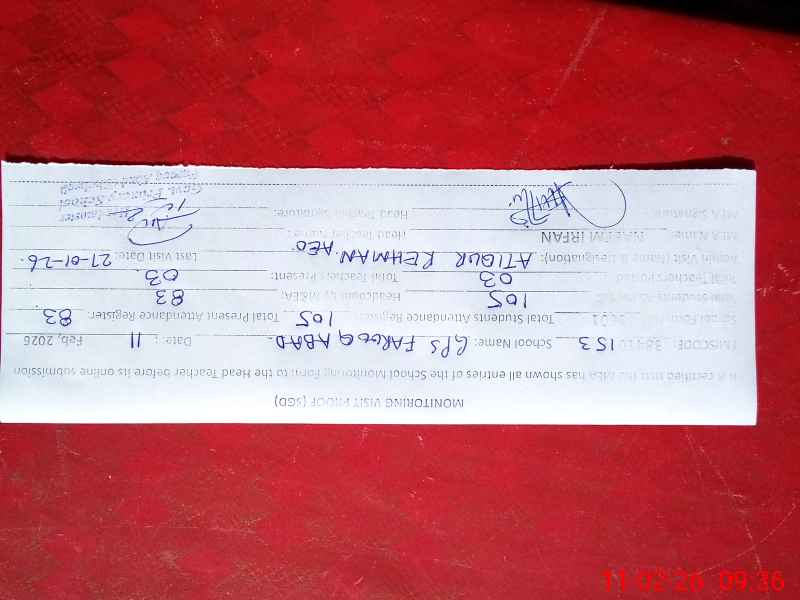 MONITORING VISIT PROOF (SGD)
It is certified that the MEA has shown all entries of the School Monitoring Form to the Head Teacher before its online submission
EMISCODE: 38410153 School Name: GPS FAROOQ ABAD Date: 11 Feb, 2026
Total Students Attendance Register: 105 Total Present Attendance Register: 83
105 Headcount by M&EA: 83
Total Teachers Posted: 03 Total Teachers Present: 03
Admin Visit (Name & Designation): ATIQUR REHMAN. AEO. Last Visit Date: 27-01-26.
MEA Name: NAEEM IRFAN Head Teacher Name:
MEA Signature: Head Teacher Signature:
11-02-26 09:36